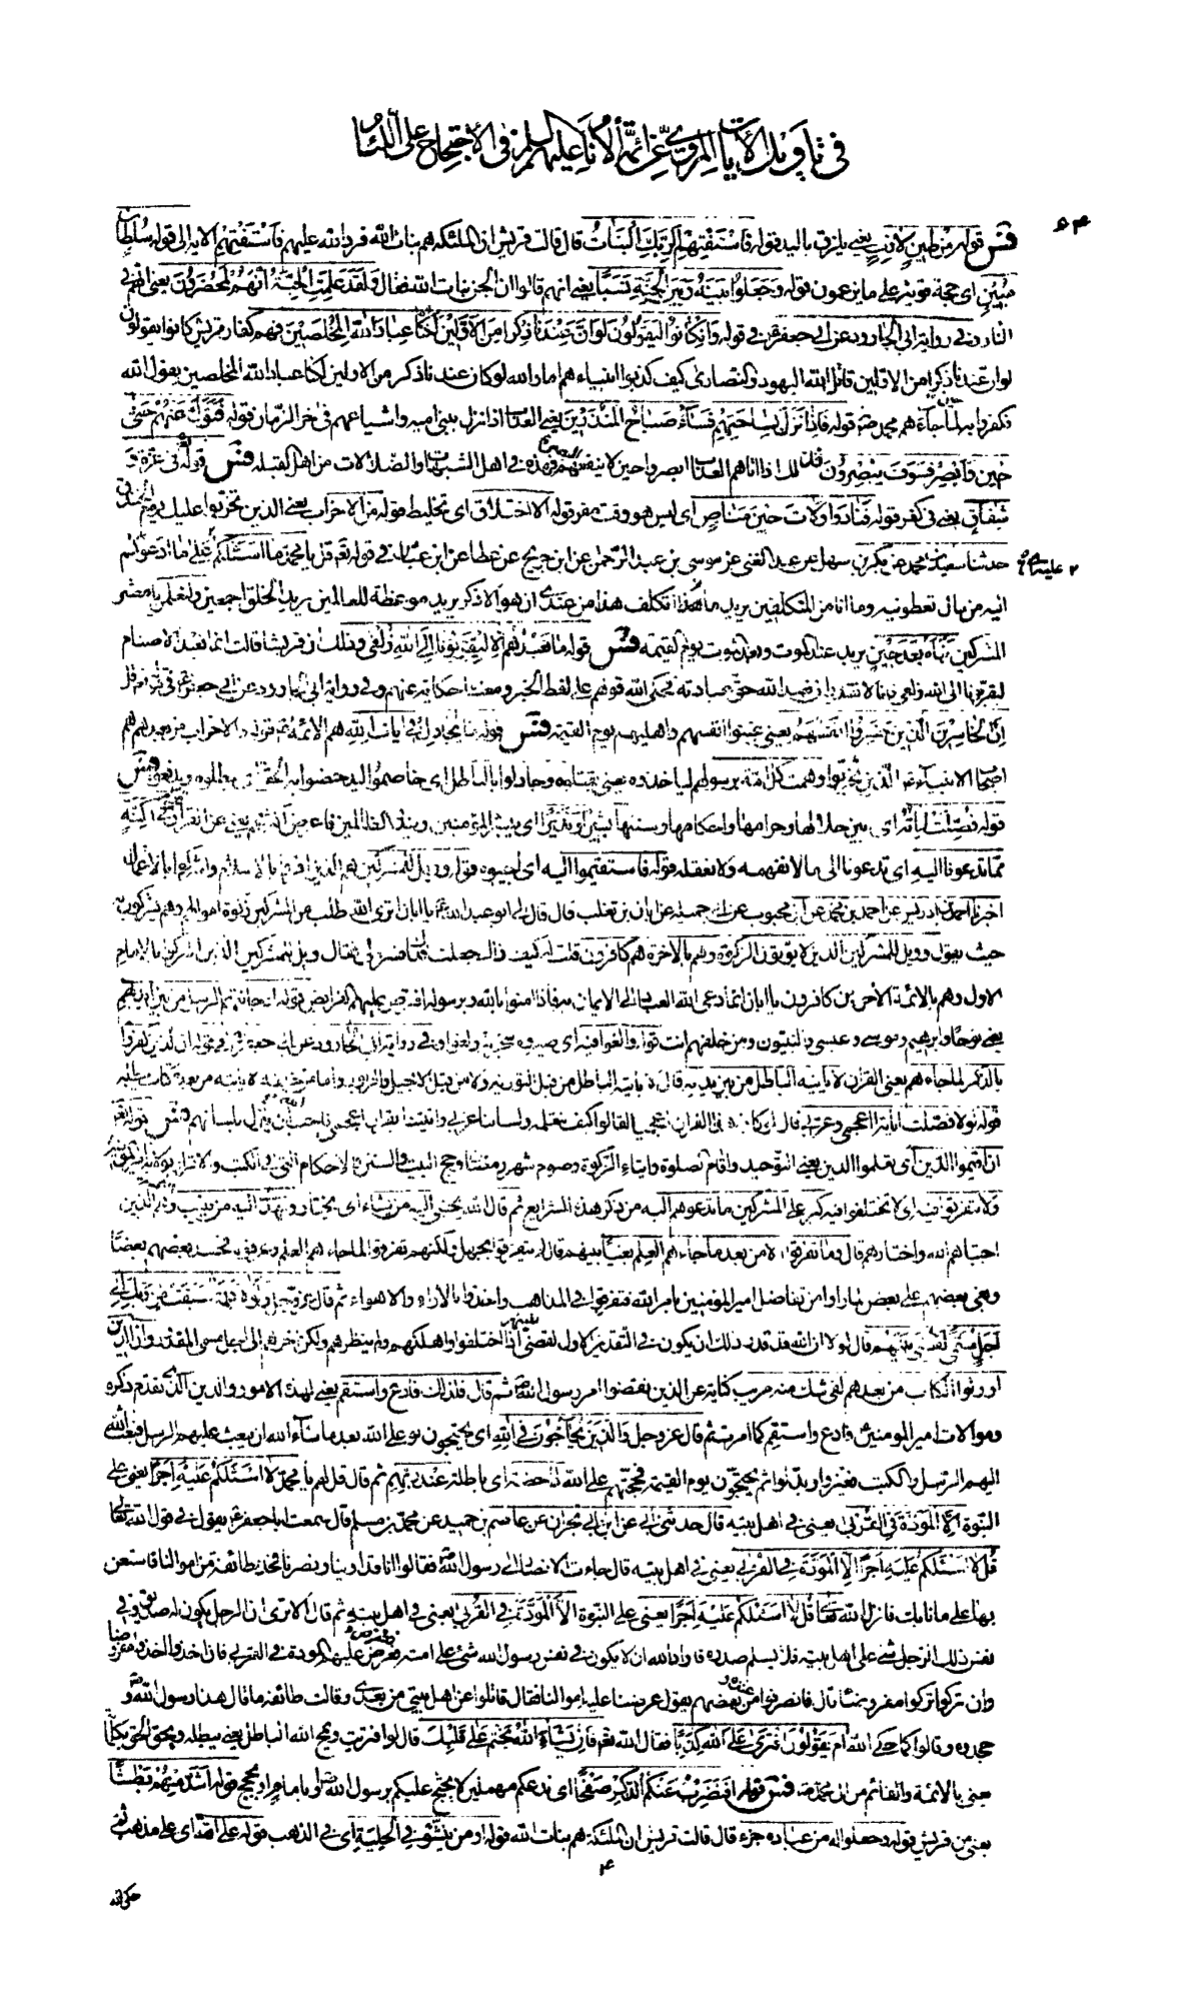 في تأويل الآيات المروي عن أئمة الأنام عليهم السلام في الاحتجاج على اللئام
۵۴
فس قوله من طين لازب يعني يلزق باليد قوله فاستفتهم ألربك البنات قال قالت قريش ان الملئكة هم بنات الله فرد الله عليهم فاستفتهم الاية الى قوله سلطان
مبين اي حجة قوية على ما يزعمون قوله وجعلوا بينه وبين الجنة نسبا يعني انهم قالوا ان الجن بنات الله فقال ولقد علمت الجنة انهم لمحضرون يعني انهم في
النار وفي رواية ابي الجارود عن ابي جعفر في قوله وان كانوا ليقولون لو ان عندنا ذكرا من الاولين لكنا عباد الله المخلصين فهم كفار قريش كانوا يقولون
لو ان عندنا ذكرا من الاولين قاتل الله اليهود والنصارى كيف كذبوا انبياءهم اما والله لو كان عندنا ذكر من الاولين لكنا عباد الله المخلصين يقول الله
فكفروا به لما جاءهم محمد ص قوله فاذا نزل بساحتهم فساء صباح المنذرين يعني العذاب اذا نزل ببني امية واشياعهم في اخر الزمان قوله فتول عنهم حتى
حين وابصر فسوف يبصرون فذلك اذا اتاهم العذاب ابصروا حين لا ينفعهم البصر فهذه في اهل الشبهات والضلالات من اهل القبلة فس قوله في عزة و
شقاق يعني في كفر قوله فنادوا ولات حين مناص اي ليس هو وقت مفر قوله الا اختلاق اي تخليط قوله من الاحزاب يعني الذين تحزبوا عليك يوم الخندق
حدثنا سعيد بن محمد عن بكر بن سهل عن عبد الغني عن موسى بن عبد الرحمن عن ابن جريج عن عطا عن ابن عباس في قوله قل يا محمد ما اسئلكم على ما ادعوكم
اليه من مال تعطونيه وما انا من المتكلفين يريد ما اتكلف هذا من عندي ان هو الا ذكر يريد موعظة للعالمين يريد الخلق اجمعين ولتعلمن يا معشر
المشركين نبأه بعد حين يريد عند الموت وبعد الموت يوم القيمة فس قوله ما نعبدهم الا ليقربونا الى الله زلفى وذلك ان قريشا قالت انما نعبد الاصنام
ليقربونا الى الله زلفى فانا لا نقدر ان نعبد الله حق عبادته فحكى الله قولهم على لفظ الخبر ومعناه حكاية عنهم وفي رواية ابي الجارود عن ابي جعفر في قوله قل
ان الخاسرين الذين خسروا انفسهم يعني غبنوا انفسهم واهليهم يوم القيمة فس قوله ما يجادل في ايات الله هم الائمة قوله والاحزاب من بعدهم هم
اصحاب الانبياء الذين تحزبوا وهمت كل امة برسولهم ليأخذوه يعني يقتلوه وجادلوا بالباطل اي خاصموا ليدحضوا به الحق اي يبطلوه ويدفعوه فس
قوله فصلت اياته اي بين حلالها وحرامها واحكامها وسننها بشيرا ونذيرا اي يبشر المؤمنين وينذر الظالمين فاعرض اكثرهم يعني عن القران في اكنة
مما تدعونا اليه اي تدعونا الى ما لا نفهمه ولا نعقله قوله فاستقيموا اليه اي اجيبوه قوله وويل للمشركين هم الذين اقروا بالاسلام واشركوا بالاعمال
اخبرنا احمد بن ادريس عن احمد بن محمد عن ابن محبوب عن ابي جميلة عن ابان بن تغلب قال قال لي ابو عبد الله يا ابان اترى الله طلب من المشركين زكوة اموالهم وهم يشركون به
حيث يقول وويل للمشركين الذين لا يؤتون الزكوة وهم بالاخرة هم كافرون قلت له كيف ذلك جعلت فداك فسره لي فقال ويل للمشركين الذين اشركوا بالامام
الاول وهم بالائمة الآخرين كافرون يا ابان انما دعى الله العباد الى الايمان به فاذا امنوا بالله وبرسوله افترض عليهم الفرايض قوله اذ جاءتهم الرسل من بين ايديهم
يعني نوحا وابرهيم وموسى وعيسى والنبيون ومن خلفهم انت قوله والغوا فيه اي صيروه سخرية ولغوا وفي رواية ابي الجارود عن ابي جعفر في قوله ان الذين كفروا
بالذكر لما جاءهم يعني القران لا يأتيه الباطل من بين يديه قال لا يأتيه الباطل من قبل التورية ولا من قبل الانجيل والزبور واما من خلفه لا يأتيه من بعده كتاب يبطله
قوله لولا فصلت اياته ءاعجمي وعربي قال لو كان هذا القران اعجميا لقالوا كيف نتعلمه ولساننا عربي واتيتنا بقران اعجمي فاحب الله ان ينزل بلسانهم فس قوله
ان اقيموا الدين اي تعلموا الدين يعني التوحيد واقام الصلوة وايتاء الزكوة وصوم شهر رمضان وحج البيت والسنن والاحكام التي في الكتب والاقرار بولاية امير المؤمنين
ولا تتفرقوا فيه اي لا تختلفوا فيه كبر على المشركين ما تدعوهم اليه من ذكر هذه الشرايع ثم قال الله يجتبي اليه من يشاء اي يختار ويهدي اليه من ينيب وهم الذين
اجتباهم الله واختارهم قال وما تفرقوا الا من بعد ما جاءهم العلم بغيا بينهم قال لم يتفرقوا بجهل ولكنهم تفرقوا لما جاءهم العلم وعرفوه فحسد بعضهم بعضا
وبغى بعضهم على بعض لما راوا من تفاضل امير المؤمنين بامر الله فتفرقوا في المذاهب واخذوا بالاراء والاهواء ثم قال عز وجل ولولا كلمة سبقت من ربك الى
اجل مسمى لقضي بينهم قال لولا ان الله قد قدر ذلك ان يكون في التقدير الاول لقضى بينهم اذا اختلفوا واهلكهم ولم ينظرهم ولكن اخرهم الى اجل مسمى المقدور وان الذين
اورثوا الكتاب من بعدهم لفي شك منه مريب كناية عن الذين نقضوا امر رسول الله ثم قال فلذلك فادع واستقم يعني لهذه الامور والدين الذي تقدم ذكره
وموالات امير المؤمنين فادع واستقم كما امرت ثم قال عز وجل والذين يحاجون في الله اي يحتجون على الله بعد ما شاء الله ان يبعث عليهم الرسل فبعث الله
اليهم الرسل والكتب فغيروا وبدلوا ثم يحتجون يوم القيمة فحجتهم على الله داحضة اي باطلة عند ربهم ثم قال قل لهم يا محمد لا اسئلكم عليه اجرا يعني على
النبوة الا المودة في القربى يعني في اهل بيته قال حدثني ابي عن ابن ابي نجران عن عاصم بن حميد عن محمد بن مسلم قال سمعت ابا جعفر يقول في قول الله تعالى
قل لا اسئلكم عليه اجرا الا المودة في القربى يعني في اهل بيته قال جاءت الانصار الى رسول الله فقالوا انا قد اوينا ونصرنا فخذ طائفة من اموالنا فاستعن
بها على ما نابك فانزل الله تعالى قل لا اسئلكم عليه اجرا يعني على النبوة الا المودة في القربى يعني في اهل بيته ثم قال الا ترى ان الرجل يكون له صديق وفي
نفس ذلك الرجل شيء على اهل بيته فلا يسلم صدره فاراد الله ان لا يكون في نفس رسول الله شيء على امته ففرض عليهم المودة في القربى فان اخذوا اخذوا مفروضا
وان تركوا تركوا مفروضا قال فانصرفوا من عنده وبعضهم يقول عرضنا عليه اموالنا فقال قاتلوا عن اهل بيتي من بعدي وقالت طائفة ما قال هذا رسول الله و
جحدوه وقالوا كما حكى الله ام يقولون افترى على الله كذبا فقال الله فان يشاء الله يختم على قلبك قال لو افتريت ويمح الله الباطل يعني يبطله ويحق الحق بكلماته
يعني بالائمة والقائم من ال محمد ص فس قوله افنضرب عنكم الذكر صفحا اي ندعكم مهملين لا نحتج عليكم برسول الله او بامام او بحجج قوله اشد منهم بطشا
يعني من قريش قوله وجعلوا له من عباده جزء قال قالت قريش ان الملئكة هم بنات الله قوله او من ينشؤ في الحلية اي في الذهب قوله على امة اي على مذهب ثم
حكى الله